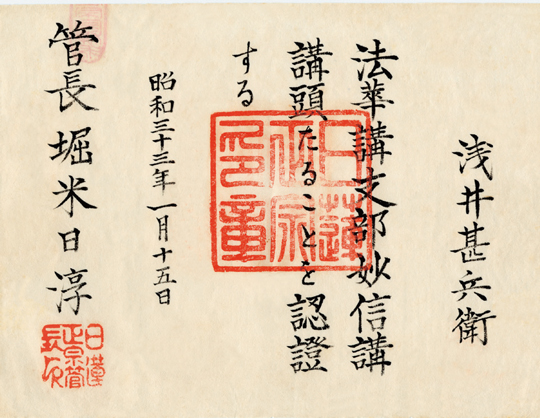 浅井甚兵衛
法華講支部妙信講
講頭たることを認證
する
昭和三十三年一月十五日
管長 堀米日淳
日蓮
正宗
之印章
日蓮
正宗管
長之印